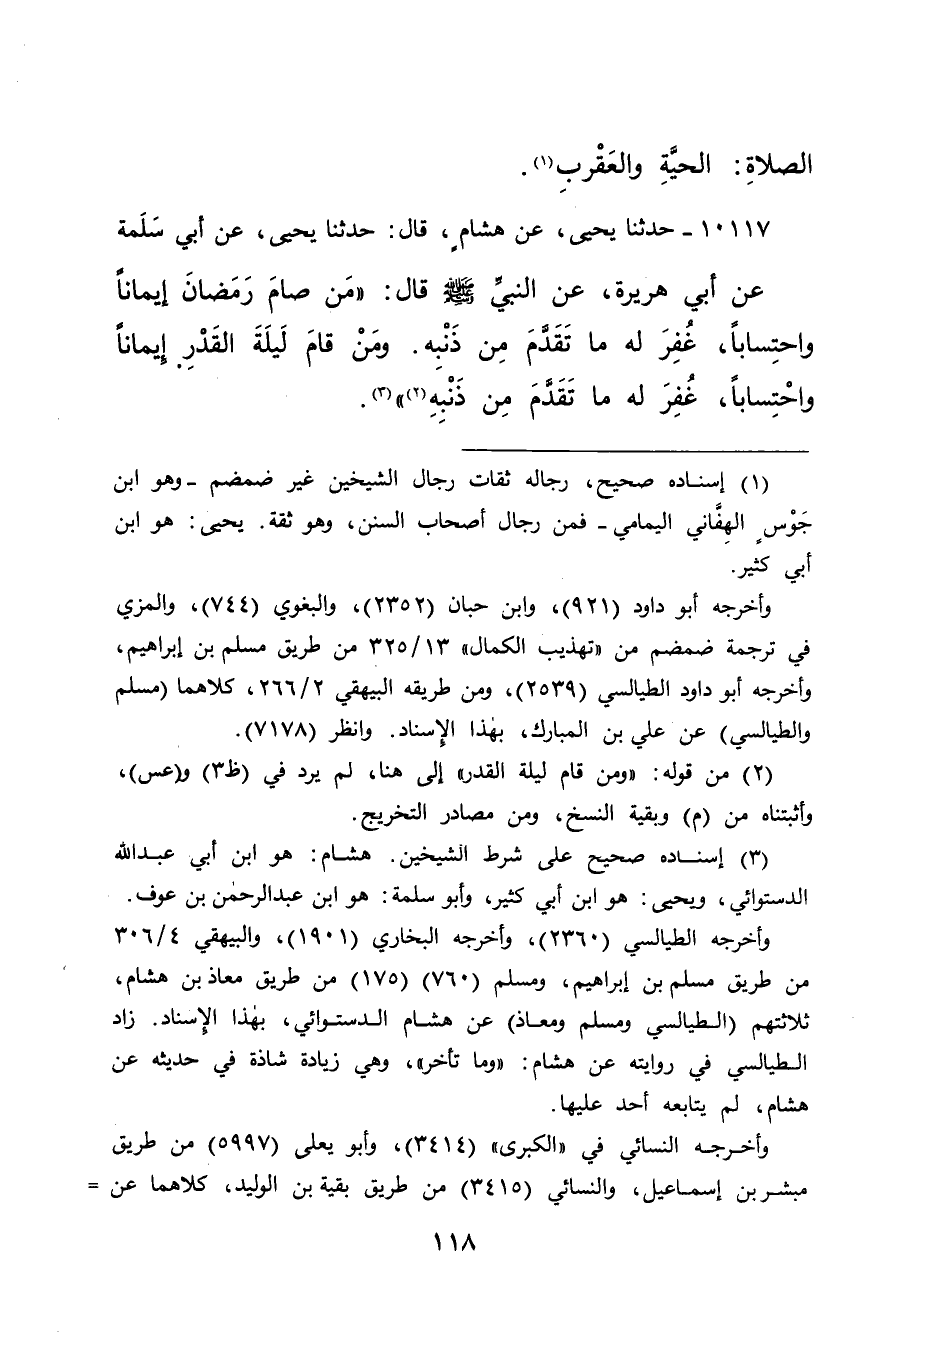 الصلاةِ: الحيَّةِ والعَقْربِ(١).
١٠١١٧ ـ حدثنا يحيى، عن هشامٍ، قال: حدثنا يحيى، عن أبي سَلَمة
عن أبي هريرة، عن النبيِّ ﷺ قال: «مَن صامَ رَمَضانَ إيماناً
واحتِساباً، غُفِرَ له ما تَقَدَّمَ مِن ذَنْبِه. ومَنْ قامَ لَيلَةَ القَدْرِ إيماناً
واحْتِساباً، غُفِرَ له ما تَقَدَّمَ مِن ذَنْبِهِ(٢)»(٣).
(١) إسناده صحيح، رجاله ثقات رجال الشيخين غير ضمضم ـ وهو ابن
جَوْسٍ الهِفَّاني اليمامي ـ فمن رجال أصحاب السنن، وهو ثقة. يحيى: هو ابن
أبي كثير.
وأخرجه أبو داود (٩٢١)، وابن حبان (٢٣٥٢)، والبغوي (٧٤٤)، والمزي
في ترجمة ضمضم من «تهذيب الكمال» ٣٢٥/١٣ من طريق مسلم بن إبراهيم،
وأخرجه أبو داود الطيالسي (٢٥٣٩)، ومن طريقه البيهقي ٢٦٦/٢، كلاهما (مسلم
والطيالسي) عن علي بن المبارك، بهٰذا الإسناد. وانظر (٧١٧٨).
(٢) من قوله: «ومن قام ليلة القدر» إلى هنا، لم يرد في (ظ٣) و(عس)،
وأثبتناه من (م) وبقية النسخ، ومن مصادر التخريج.
(٣) إسناده صحيح على شرط الشيخين. هشام: هو ابن أبي عبدالله
الدستوائي، ويحيى: هو ابن أبي كثير، وأبو سلمة: هو ابن عبدالرحمٰن بن عوف.
وأخرجه الطيالسي (٢٣٦٠)، وأخرجه البخاري (١٩٠١)، والبيهقي ٣٠٦/٤
من طريق مسلم بن إبراهيم، ومسلم (٧٦٠) (١٧٥) من طريق معاذ بن هشام،
ثلاثتهم (الطيالسي ومسلم ومعاذ) عن هشام الدستوائي، بهٰذا الإسناد. زاد
الطيالسي في روايته عن هشام: «وما تأخر»، وهي زيادة شاذة في حديثه عن
هشام، لم يتابعه أحد عليها.
وأخرجه النسائي في «الكبرى» (٣٤١٤)، وأبو يعلى (٥٩٩٧) من طريق
مبشر بن إسماعيل، والنسائي (٣٤١٥) من طريق بقية بن الوليد، كلاهما عن =
١١٨